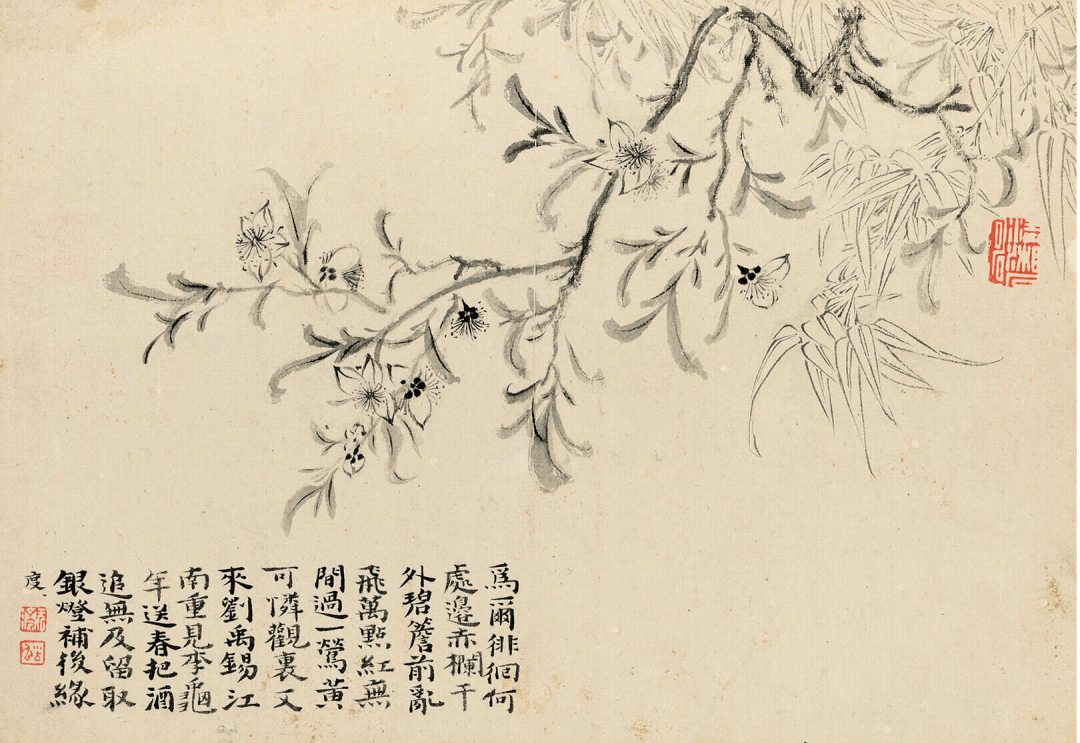 爲爾徘徊何
處邊赤欄干
外碧簷前亂
飛萬點紅無
間過一鶯黃
可憐觀裏又
來劉禹錫江
南重見李龜
年送春把酒
追無及留取
銀燈補後緣
度